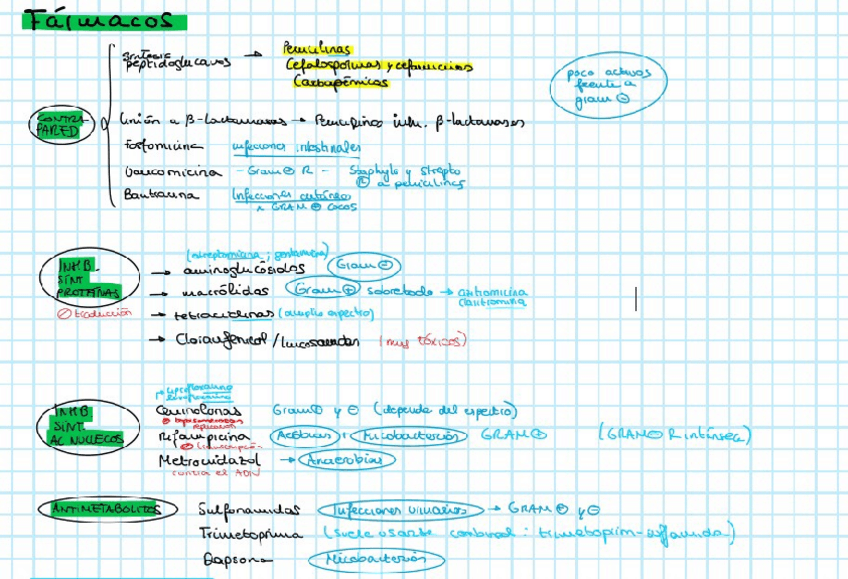 Fármacos
síntesis peptidoglucanos → Penicilinas
Cefalosporinas y cefamicinas
Carbapémicos
poco activos
frente a
gram ⊖
CONTRA
PARED
Unión a β-lactamasas → Penicilinas inh. β-lactamasas
Fosfomicina infecciones intestinales
Vancomicina - Gram ⊕ R - Staphylo y Strepto
Ⓡ a penicilinas
Bacitracina Infecciones cutáneas
x GRAM ⊕ cocos
INHB.
SINT
PROTEÍNAS
⊘ traducción
(estreptomicina; gentamicina)
→ aminoglucósidos Gram ⊖
→ macrólidos Gram ⊕ sobretodo → azitromicina
claritromicina
→ tetraciclinas (amplio espectro)
→ Cloranfenicol / lincosamidas (muy tóxicos)
INHB
SINT
AC NUCLEICOS
ciprofloxacino
levofloxacino
Quinolonas Gram ⊕ y ⊖ (depende del espectro)
⊘ topoisomerasas
replicación
Rifampicina Micobacterias GRAM ⊕ (GRAM ⊖ R intínseca)
⊘ transcripción
Metronidazol → Anaerobias
contra el ADN
ANTIMETABOLITOS Sulfonamidas Infecciones urinarias → GRAM ⊕ y ⊖
Trimetoprima (suele usarse combinad: trimetoprim-sulfamida)
Dapsona Micobacterias